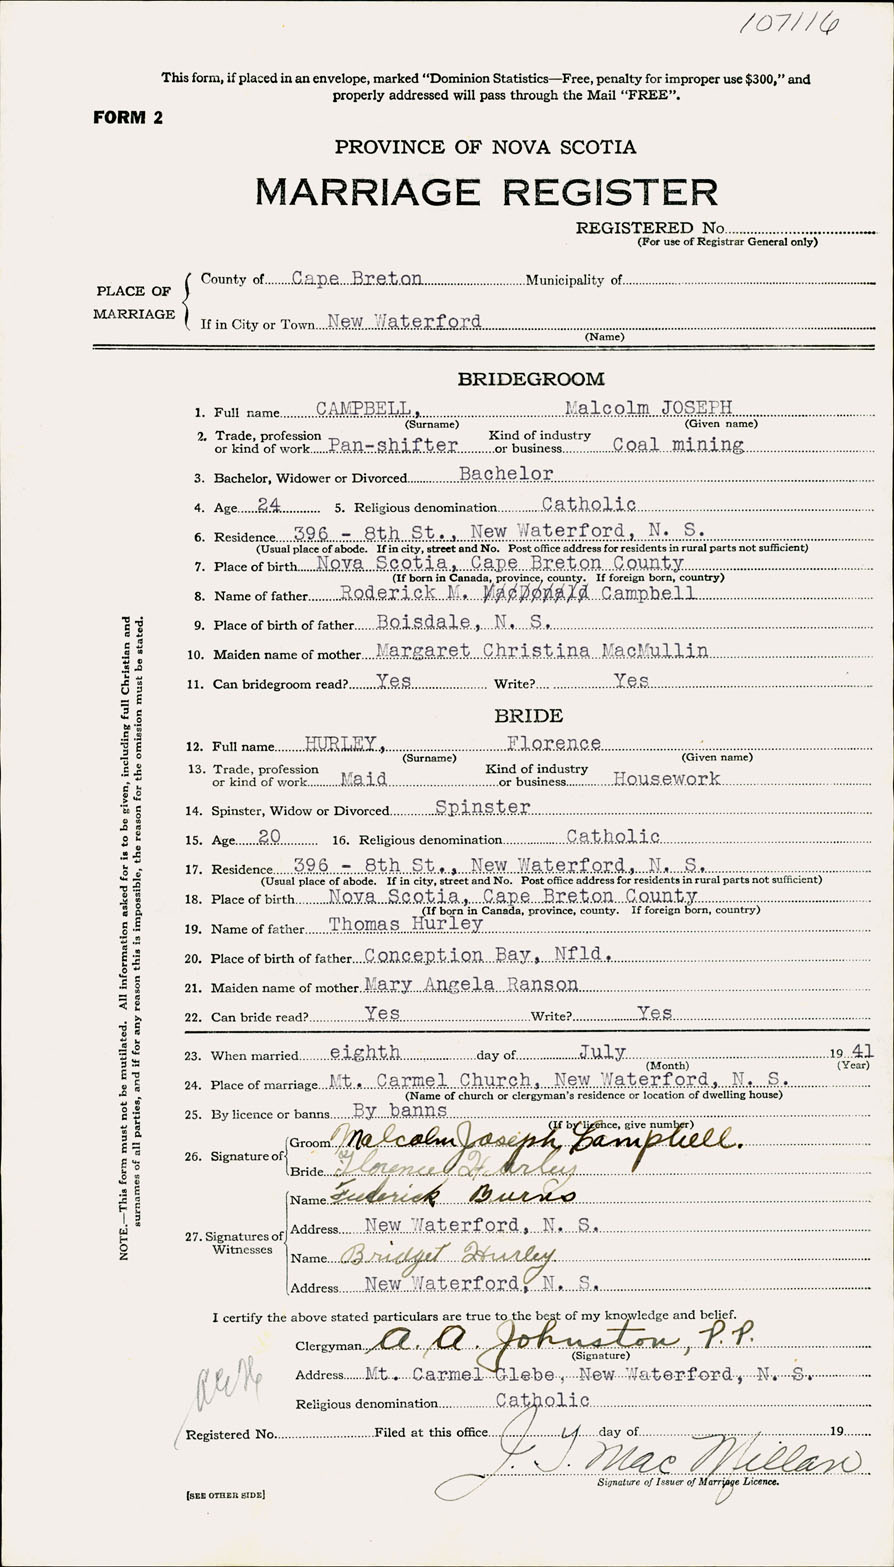 107116
This form, if placed in an envelope, marked “Dominion Statistics—Free, penalty for improper use $300,” and
properly addressed will pass through the Mail “FREE”.
FORM 2
PROVINCE OF NOVA SCOTIA
MARRIAGE REGISTER
REGISTERED No.
(For use of Registrar General only)
PLACE OF MARRIAGE
County of Cape Breton Municipality of
If in City or Town New Waterford
(Name)
BRIDEGROOM
1. Full name CAMPBELL, Malcolm JOSEPH
(Surname) (Given name)
2. Trade, profession or kind of work Pan-shifter Kind of industry or business Coal mining
3. Bachelor, Widower or Divorced Bachelor
4. Age 24 5. Religious denomination Catholic
6. Residence 396 - 8th St., New Waterford, N. S.
(Usual place of abode. If in city, street and No. Post office address for residents in rural parts not sufficient)
7. Place of birth Nova Scotia, Cape Breton County
(If born in Canada, province, county. If foreign born, country)
8. Name of father Roderick M. MacDonald Campbell
9. Place of birth of father Boisdale, N. S.
10. Maiden name of mother Margaret Christina MacMullin
11. Can bridegroom read? Yes Write? Yes
BRIDE
12. Full name HURLEY, Florence
(Surname) (Given name)
13. Trade, profession or kind of work Maid Kind of industry or business Housework
14. Spinster, Widow or Divorced Spinster
15. Age 20 16. Religious denomination Catholic
17. Residence 396 - 8th St., New Waterford, N. S.
(Usual place of abode. If in city, street and No. Post office address for residents in rural parts not sufficient)
18. Place of birth Nova Scotia, Cape Breton County
(If born in Canada, province, county. If foreign born, country)
19. Name of father Thomas Hurley
20. Place of birth of father Conception Bay, Nfld.
21. Maiden name of mother Mary Angela Ranson
22. Can bride read? Yes Write? Yes
23. When married eighth day of July 19 41
(Month) (Year)
24. Place of marriage Mt. Carmel Church, New Waterford, N. S.
(Name of church or clergyman's residence or location of dwelling house)
25. By licence or banns By banns
(If by licence, give number)
26. Signature of
Groom Malcolm Joseph Campbell.
Bride Florence Hurley
27. Signatures of Witnesses
Name Frederick Burns
Address New Waterford, N. S.
Name Bridget Hurley
Address New Waterford, N. S.
I certify the above stated particulars are true to the best of my knowledge and belief.
Clergyman A. A. Johnston, P.P.
(Signature)
Address Mt. Carmel Glebe, New Waterford, N. S.
Religious denomination Catholic
Registered No. Filed at this office day of 19
J. Y. Mac Millan
Signature of Issuer of Marriage Licence.
[SEE OTHER SIDE]
NOTE.—This form must not be mutilated. All information asked for is to be given, including full Christian and
surnames of all parties, and if for any reason this is impossible, the reason for the omission must be stated.